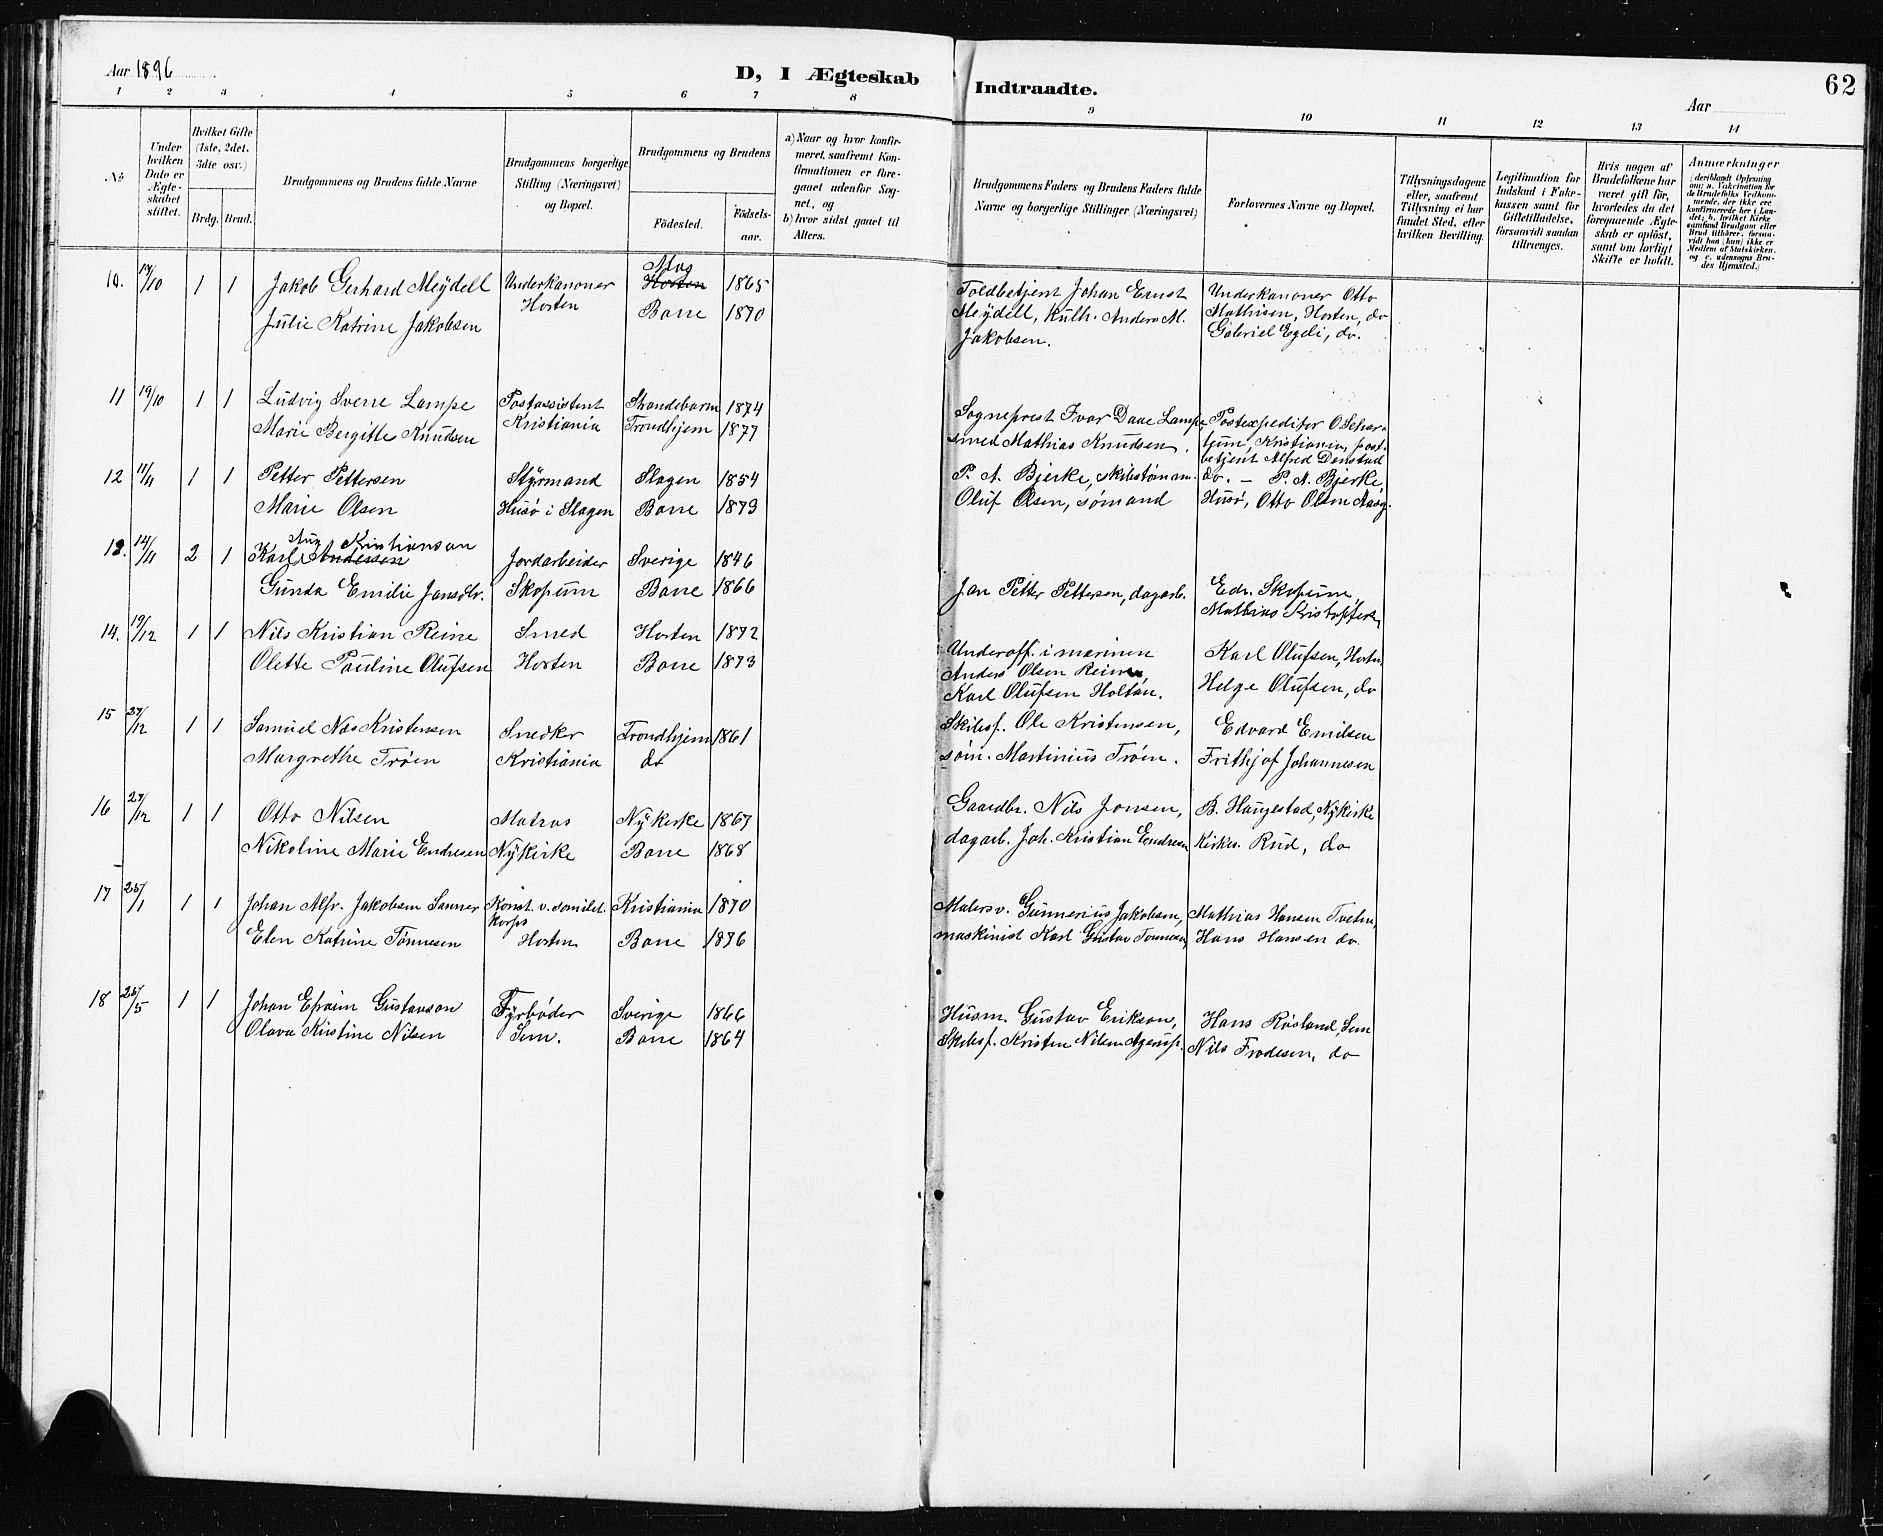 Aar 1896
D, I Ægteskab Indtraadte.
Aar
62
1 2 3 4 5 6 7 8 9 10 11 12 13 14
No
Under hvilken Dato er Ægteskabet stiftet.
Hvilket Gifte (1ste, 2det, 3die osv.)
Brdg. Brud.
Brudgommens og Brudens fulde Navne
Brudgommens borgerlige Stilling (Næringsvei) og Bopæl.
Brudgommens og Brudens
Födested. Födselsaar.
a) Naar og hvor konfirmeret, saafremt Konfirmationen er foregaaet udenfor Sognet, og
b) hvor sidst gaaet til Alters.
Brudgommens Faders og Brudens Faders fulde Navne og borgerlige Stillinger (Næringsvei)
Forlovernes Navne og Bopæl.
Tillysningsdagene eller, saafremt Tillysning ei har fundet Sted, efter hvilken Bevilling.
Legitimation for Indskud i Enkekassen samt for Giftetilladelse, forsaavidt saadan tiltrænges.
Hvis nogen af Brudefolkene har været gift før, hvorledes da det foregaaende Ægteskab er opløst, samt om lovligt Skifte er holdt.
Anmærkninger (deriblandt Oplysning om: a. Vakcination for de Brudefolks Vedkommende, der ikke ere konfirmerede her i Landet; b. hvilket Kirkesamfund Brudgom eller Brud tilhører, forsaavidt han (hun) ikke er Medlem af Statskirken, og c. udensogns Brudes Hjemsted.)
10. 17/10 1 1 Jakob Gerhard Meÿdell Underkanoner Horten 1865 Toldbetjent Johan Ernst Underkanoner Otto
Julie Katrine Jakobsen Horten Borre 1870 Meÿdell, Kulh. Anders M. Jakobsen. Mathisen, Horten, do Gabriel Egeli, do.
11 19/10 1 1 Ludvig Sverre Lampe Postassistent Strandebarm 1874 Sogneprest Ivar Daae Lampe, Postexpeditør O
Marie Bergitte Knudsen Kristiania Trondhjem 1877 smed Mathias Knudsen. Kristiania, postbetjent Alfred Denstad
12 11/4 1 1 Petter Pettersen Styrmand Slagen 1854 P. A. Bjerke, do. – P. A. Bjerke,
Marie Olsen Husø i Slagen Borre 1873 Oluf Olsen, sømand Husø, Otto Olsen
13. 14/11 2 1 Karl Aug Kristiansen Andersen Jordarbeider Sverige 1846
Gunda Emilie Jansdtr. Skopum Borre 1866 Jan Petter Pettersen, dagarb. Edv. Skopum, Mathias
14. 19/12 1 1 Nils Kristian Reine Smed Horten 1872 Underoff. i marinen Karl Olufsen, Horten
Olette Pauline Olufsen Horten Borre 1873 Anders Olsen Reine, Karl Olufsen Holtan. Helge Olufsen, do
15 27/12 1 1 Samuel Kristensen Snedker Trondhjem 1861 Skibsf. Ole Kristensen, Edvard Emilsen
Margrethe Trøen Kristiania do søm. Martinius Trøen. Frithjof Johannesen
16 27/12 1 1 Otto Nilsen Matros Nykirke 1867 Gaardbr. Nils Jonsen, B. Haugestad, Nykirke
Nikoline Marie Endresen Nykirke Borre 1868 dagarb. Joh. Kristian Endresen Kirkes. Rud, do
17 25/1 1 1 Johan Alfr. Jakobsen Sanner Konst. v. korps Kristiania 1870 Malersv. Gunnerius Jakobsen, Mathias Hansen
Elen Katrine Tønnesen Horten Borre 1876 maskinist Karl Gustav Tønnesen, Hans Hansen do.
18 25/5 1 1 Johan Efraim Gustavson Fyrbøder Sverige 1866 Husm. Gustav Erikson, Hans Røsland, Sem
Olava Kristine Nilsen Sem. Borre 1864 Skibsf. Kristen Nilsen Nils Frodesen, do